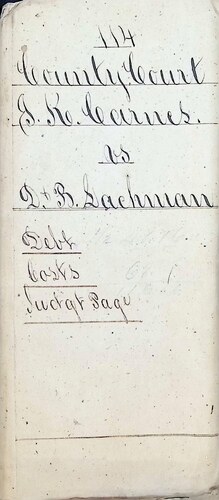 114
County Court
J. K. Carnes.
vs
D & B. Lachman
Debt
Costs
Judgt Page